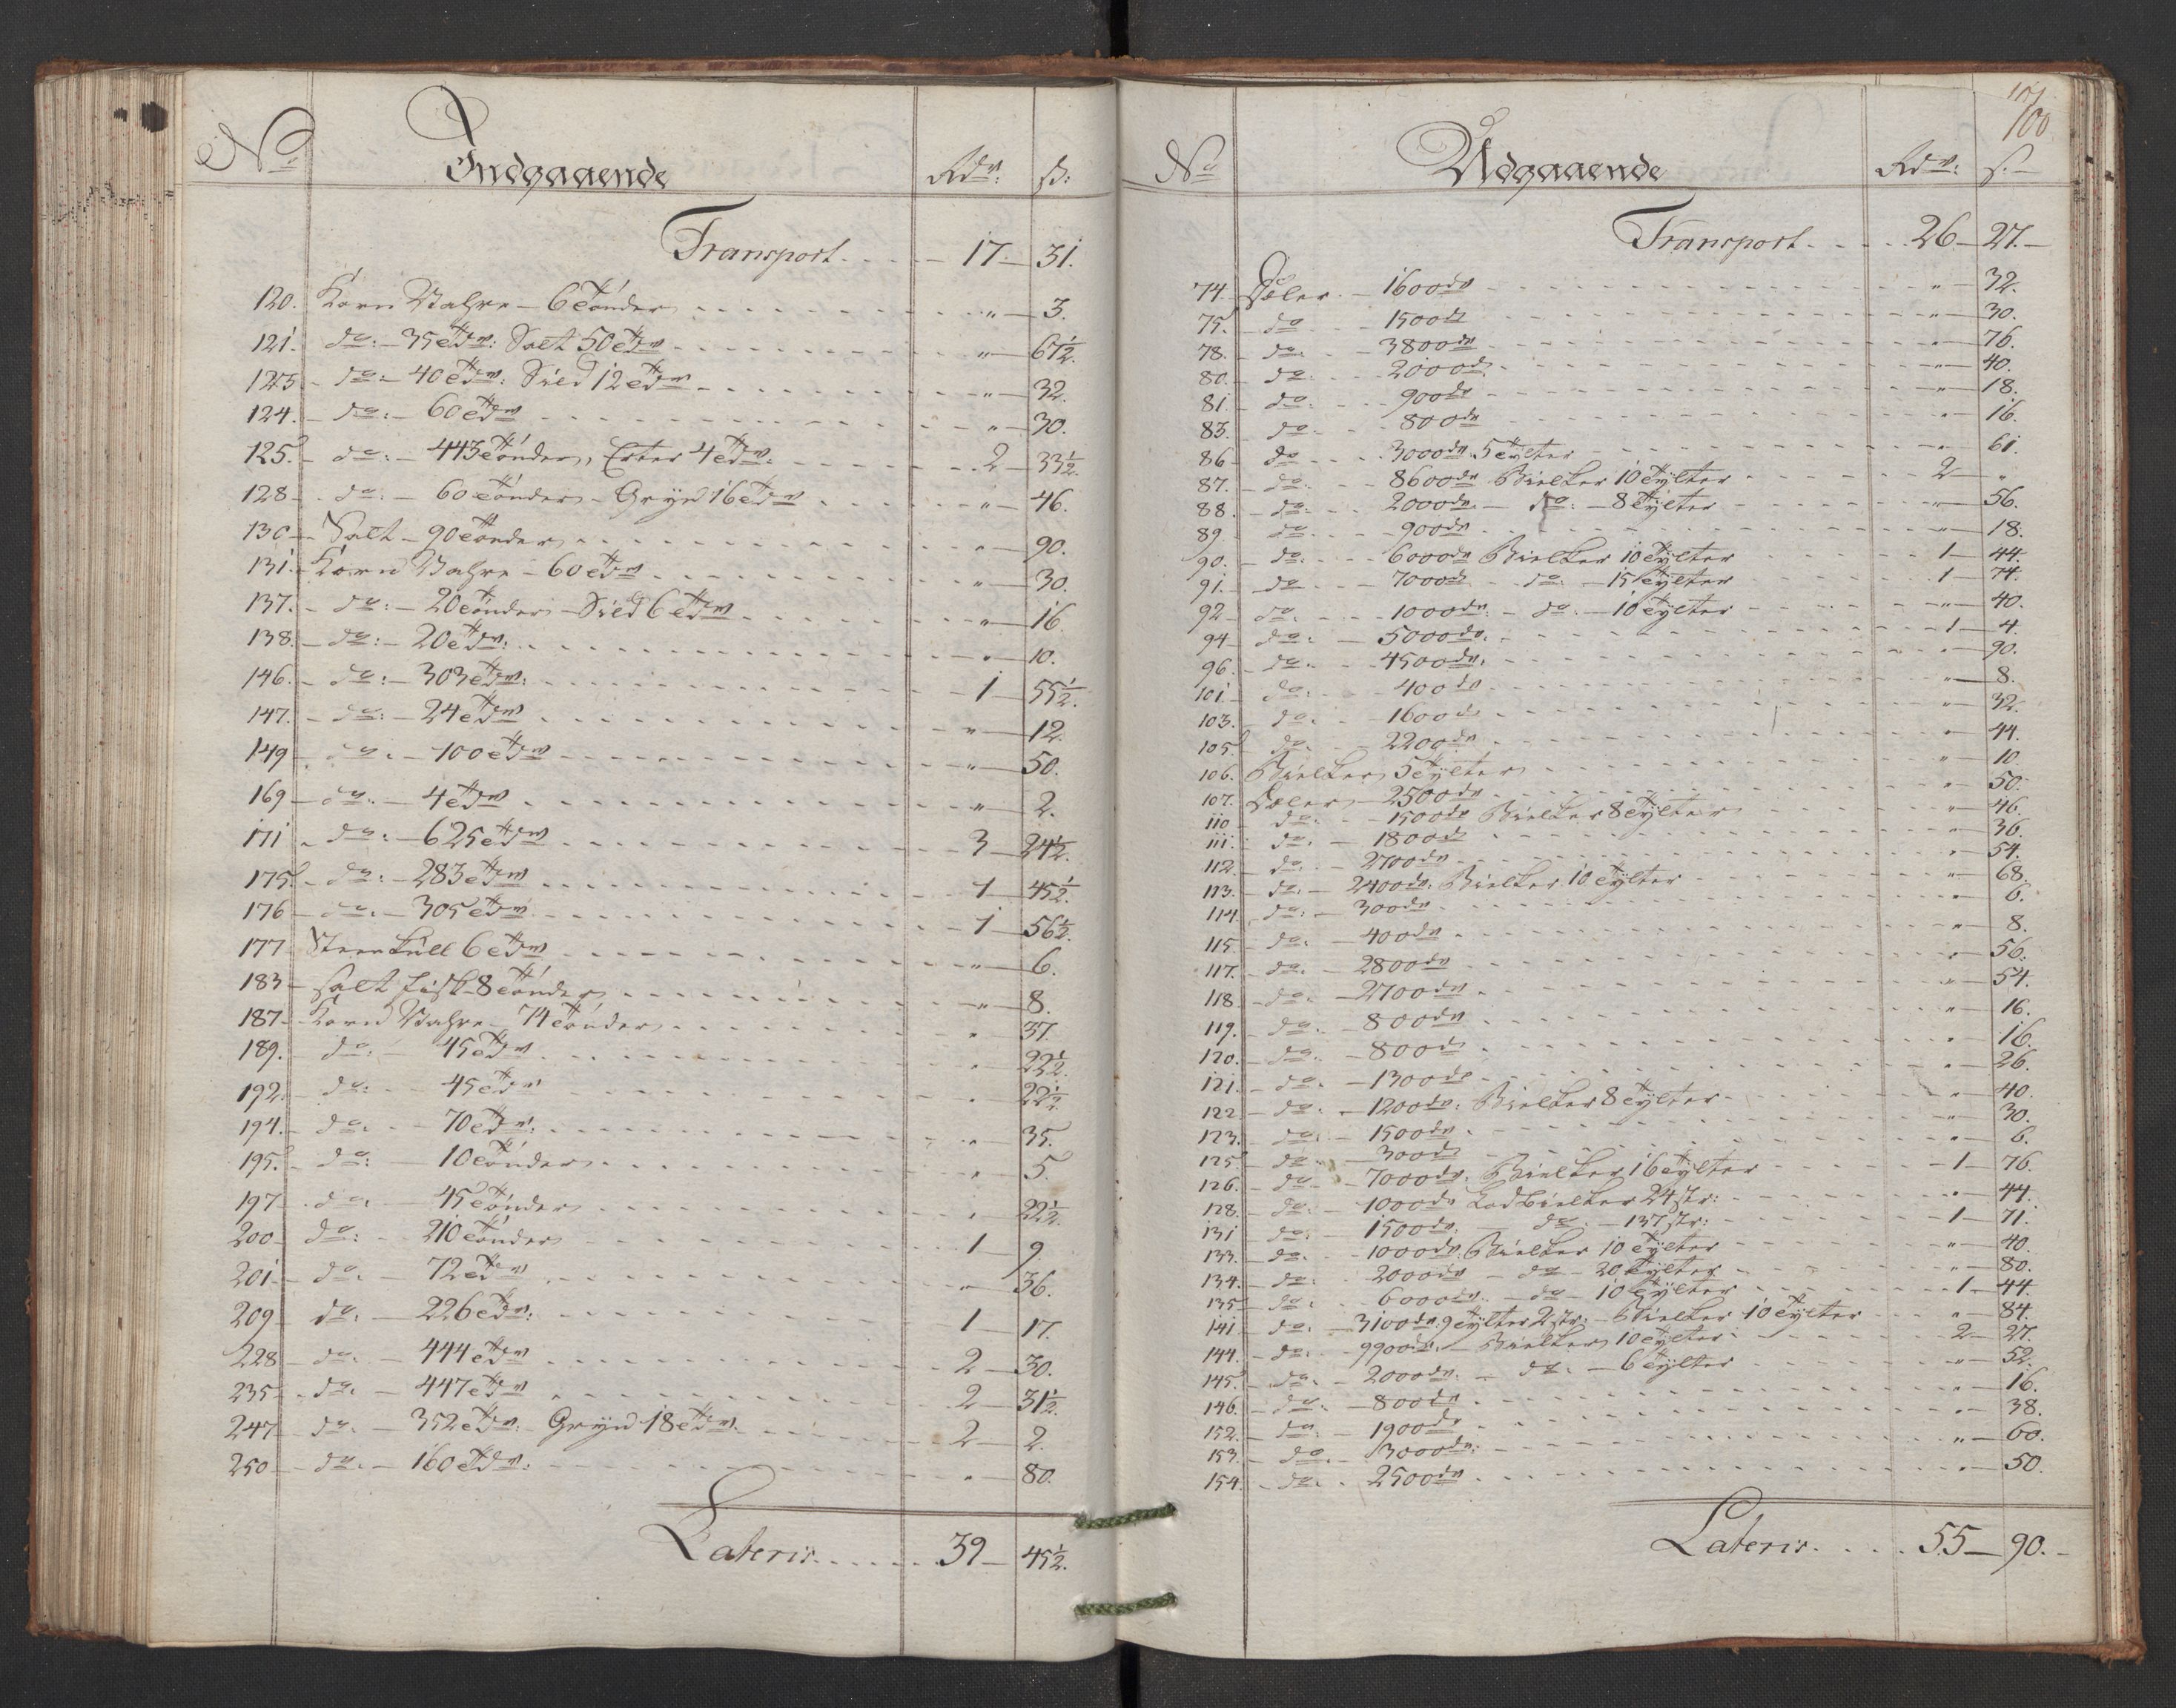 No Indgaaende Rdr: ß:
Transport 17 31.
120. Korn Vahre - 6 Tönder " 3.
121. do: - 35 do: Salt 50 do " 67½.
123 do: - 40 do: Sild 12 do " 32.
124. do: - 60 do " 30.
125. do: - 443 Tönder, Erter 4 do: 2 33½.
128 do: - 60 Tönder - Gryn 16 do " 46.
130 Salt - 90 Tönder " 90.
131. Korn Vahre - 60 do " 30.
137. do: - 20 Tönder - Sild 6 do " 16
138. do: - 20 do: " 10.
146. do: - 303 do: 1 55½.
147. do: - 24 do " 12.
149 do. - 100 do " 50.
169 do. - 4 do " 2.
171 do: - 625 do 3 24½.
175. do: - 283 do 1 45½.
176 do. - 305 do 1 56½.
177 Steenkull 6 do " 6.
183 salt fisk - 8 Tönder " 8.
187 Korn Vahre - 74 Tönder " 37.
189. do: 45 do " 22½.
192. do: 45 do " 22½
194. do. 70 do: " 35.
195. do: - 10 Tönder " 5.
197 do. 45 Tönder " 22½.
200 do: 210 Tönder 1 9.
201 do. - 72 do " 36.
209 do. - 226 do: 1 17.
228 do. - 444 do 2 30.
235 do. - 447 do 2 31½.
247 do. - 352 do. Gryn 18 do. 2 2.
250 do. - 160 do. " 80.
Lateris 39 45½.
101
100
No Udgaaende Rdr: s.
Transport 26 27.
74. Deler - 1600 do " 32.
75. do 1500 do " 30.
78. do. 3800 do " 76.
80. do. 2000 do " 40.
81. do. 900 do " 18.
83. do. 800 do " 16.
86 do 3000 do. 5 Tylter " 61.
87. do. 8600 do Bielker 10 Tylter 2 "
88. do. 2000 do. - do: - 8 Tylter " 56.
89 do. 900 do " 18.
90. do. 6000 do Bielker 10 Tylter 1 44.
91. do 7000 do do: - 15 Tylter 1 74.
92 do. 1000 do. - do. - 10 Tylter " 40.
94 do: 5000 do. 1 4.
96. do. 4500 do. " 90.
101. do. 400 do " 8.
103. do. 1600 do " 32.
105. do. 2200 do " 44.
106. Bielker 5 Tylter " 10.
107. Deler - 2500 do " 50.
110 do. 1500 do Bielker 8 Tylter " 46.
111. do. 1800 do " 36.
112. do. 2700 do " 54.
113. do. - 2400 do. Bielker 10 Tylter " 68.
114. do: - 300 do " 6.
115. do. - 400 do " 8.
117. do. - 2800 do " 56.
118 do. - 2700 do " 54.
119. do. - 800 do " 16.
120. do. - 800 do " 16.
121. do. - 1300 do " 26.
122 do. - 1200 do: Bielker 8 Tylter " 40.
123. do. - 1500 do " 30.
125. do. - 300 do " 6.
126. do. - 7000 do. Bielker 16 Tylter 1 76.
128. do. - 1000 do Lodbielker 24 str: " 44.
131 do: - 1500 do. - do. - 137 str: 1 71.
133. do. - 1000 do. Bielker 10 Tylter " 40.
134. do. 2000 do - do - 20 Tylter " 80.
135. do. 6000 do. - do - 10 Tylter 1 44.
141. do. - 3100 do. 9 Tylter 2 str: - Bielker 10 Tylter " 84.
144. do. 9900 do. - Bielker 10 Tylter 2 27.
145. do. - 2000 do. - do. - 6 Tylter " 52.
146. do. - 800 do " 16.
152. do: - 1900 do " 38.
153. do. - 3000 do. " 60.
154. do. - 2500 do " 50.
Lateris 55 90.